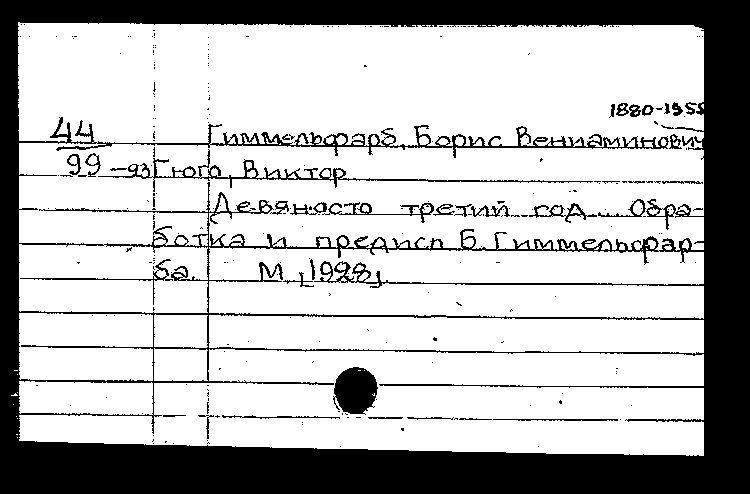 1880-1955
44 Гиммельфарб, Борис Вениаминович
99-93 Гюго, Виктор
Девяносто третий год... Обра-
ботка и предисл Б. Гиммельфар-
ба. М, [1928].